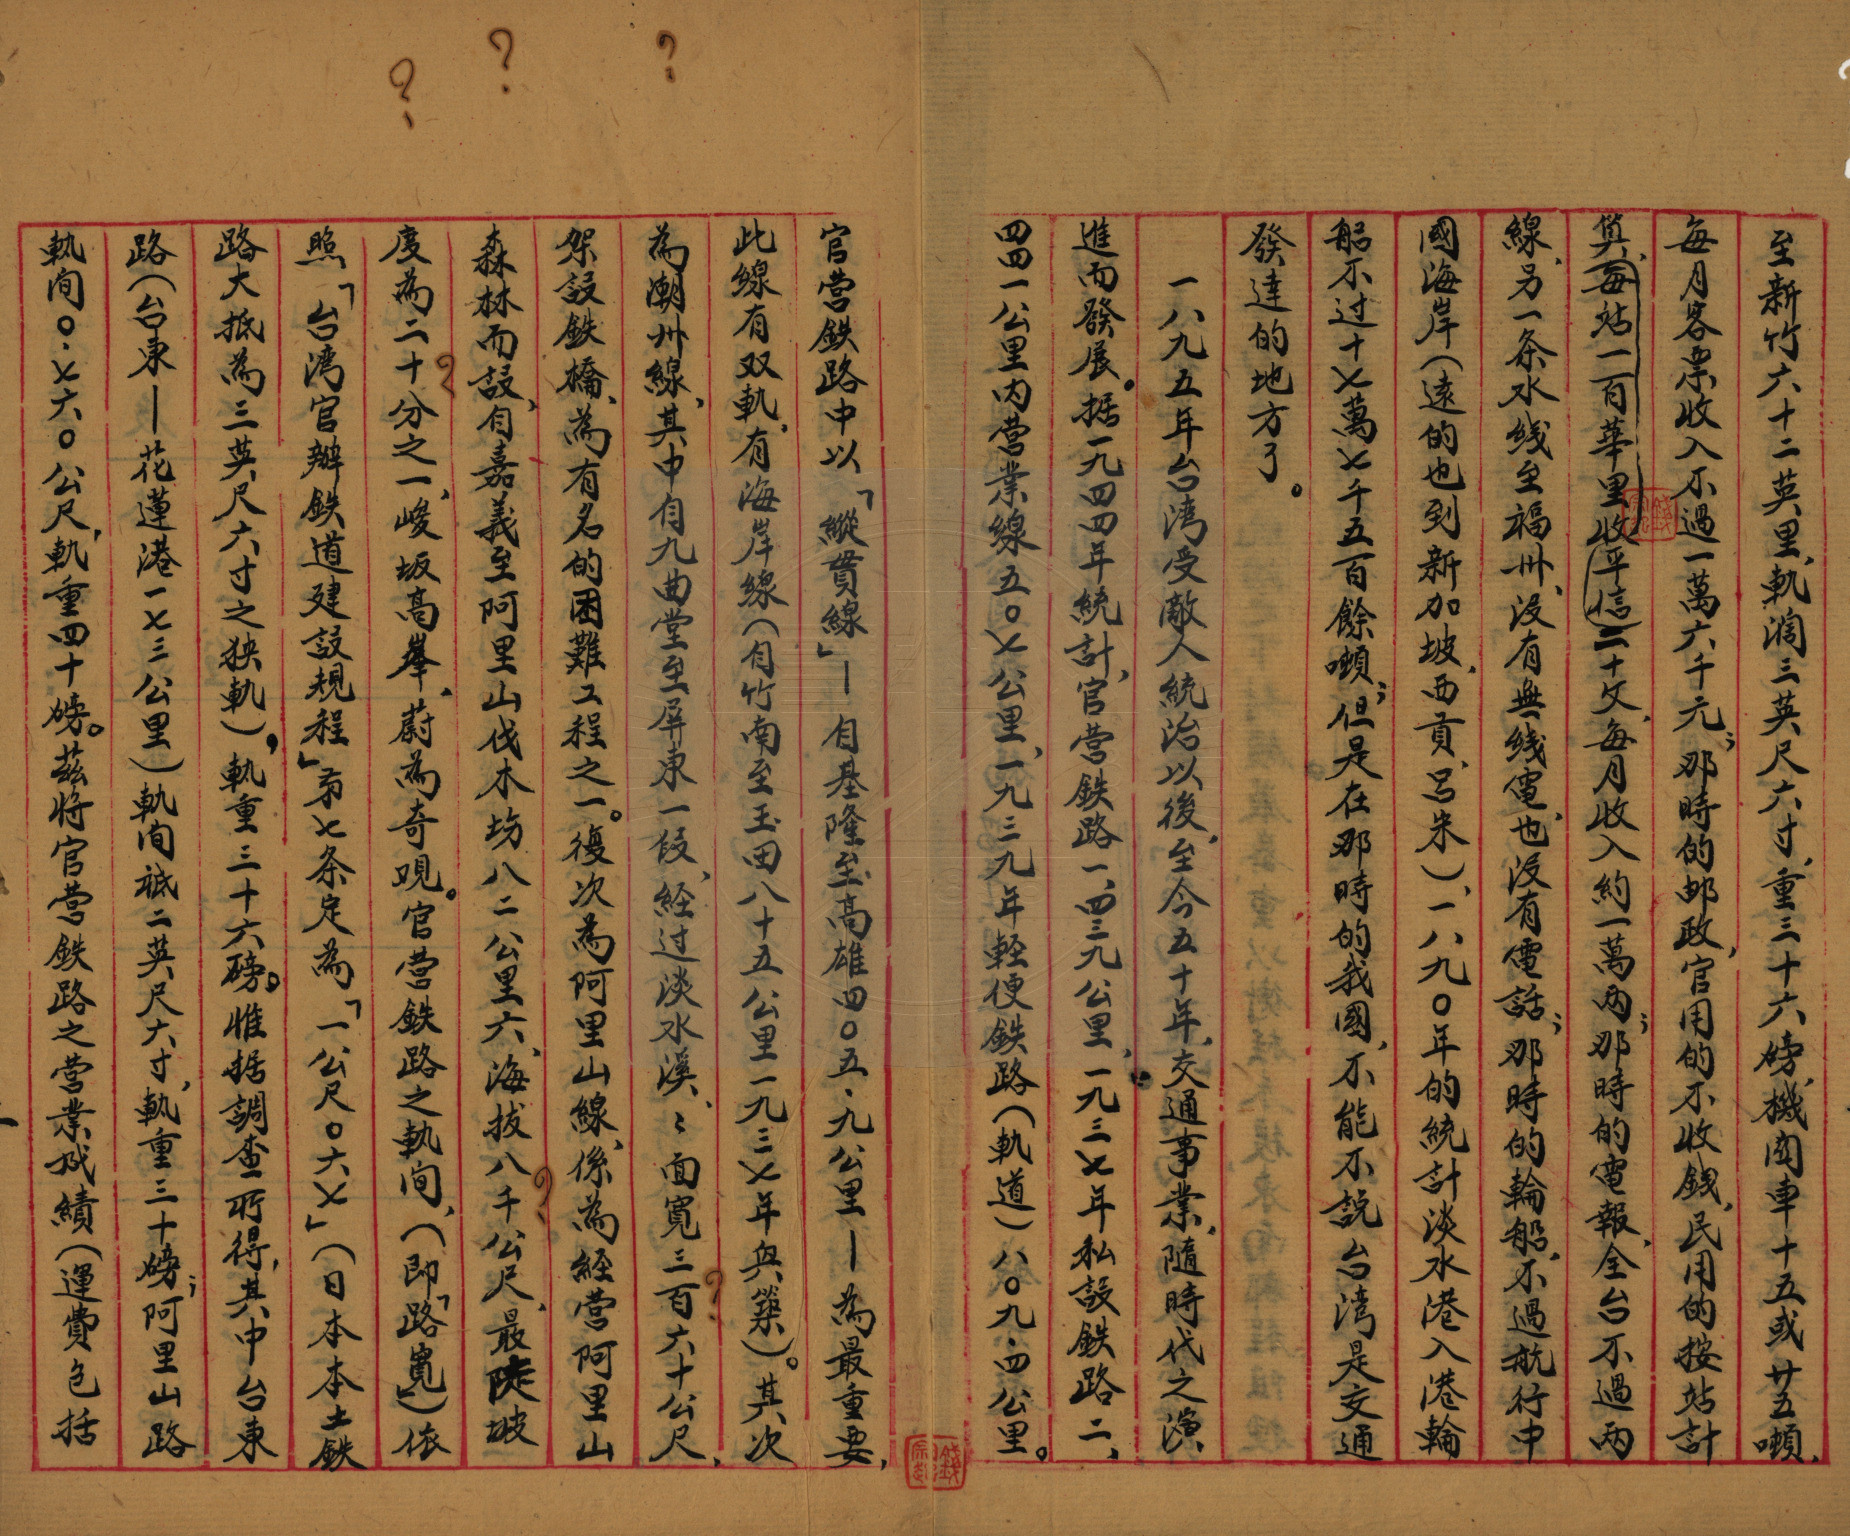 至新竹六十二英里，軌濶三英尺六寸，重三十六磅，機関車十五或廿五噸，
每月客票收入不過一萬六千元；那時的邮政，官用的不收錢，民用的按站計
算，每站一百華里收平信二十文，每月收入約一萬两；那時的電報，全台不過两
線，另一条水线至福州，没有無线電，也没有電話；那時的輪船，不過航行中
國海岸（遠的也到新加坡，西貢，呂宋），一八九〇年的統計淡水港入港輪
船不过十七萬七千五百餘噸；但是在那時的我國，不能不説台湾是交通
發達的地方了。
一八九五年台湾受敵人統治以後，至今五十年，交通事業，隨時代之演
進而發展。据一九四四年統計，官营鉄路一、四三九公里，一九三七年私設鉄路二、
四四一公里内营業線五〇七公里，一九三九年軽便鉄路（軌道）八〇九．四公里。
官营鉄路中以「縱貫線」—自基隆至高雄四〇五．九公里—為最重要，
此線有双軌，有海岸線（自竹南至玉田八十五公里一九三七年興築）。其次
為潮州線，其中自九曲堂至屏東一段，经过淡水溪，ミ面寬三百六十公尺，
架設鉄橋，為有名的困難工程之一。復次為阿里山線，係為経营阿里山
森林而設，自嘉義至阿里山伐木場八二公里六，海拔八千公尺，最陡坡
度為二十分之一，峻坂高峯，蔚為奇观。官营鉄路之軌间，（即「路寬」）依
照「台湾官辦鉄道建設規程」第七条定為「一公尺〇六七」（日本本土鉄
路大抵為三英尺六寸之狭軌），軌重三十六磅。惟据調查所得，其中台東
路（台東—花蓮港一七三公里）軌间祗二英尺六寸，軌重三十磅；阿里山路
軌间〇．七六〇公尺，軌重四十磅。茲将官营鉄路之营業成績（運費包括